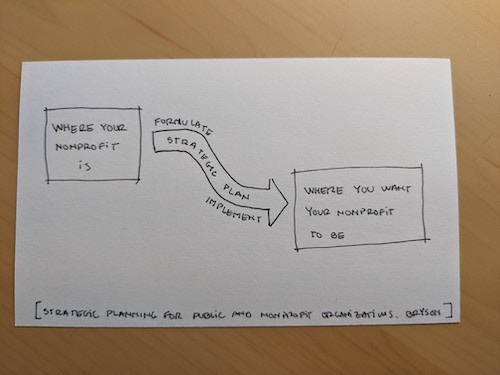 WHERE YOUR
NONPROFIT
IS
FORMULATE
STRATEGIC PLAN
IMPLEMENT
WHERE YOU WANT
YOUR NONPROFIT
TO BE
[STRATEGIC PLANNING FOR PUBLIC AND NONPROFIT ORGANIZATIONS. BRYSON]